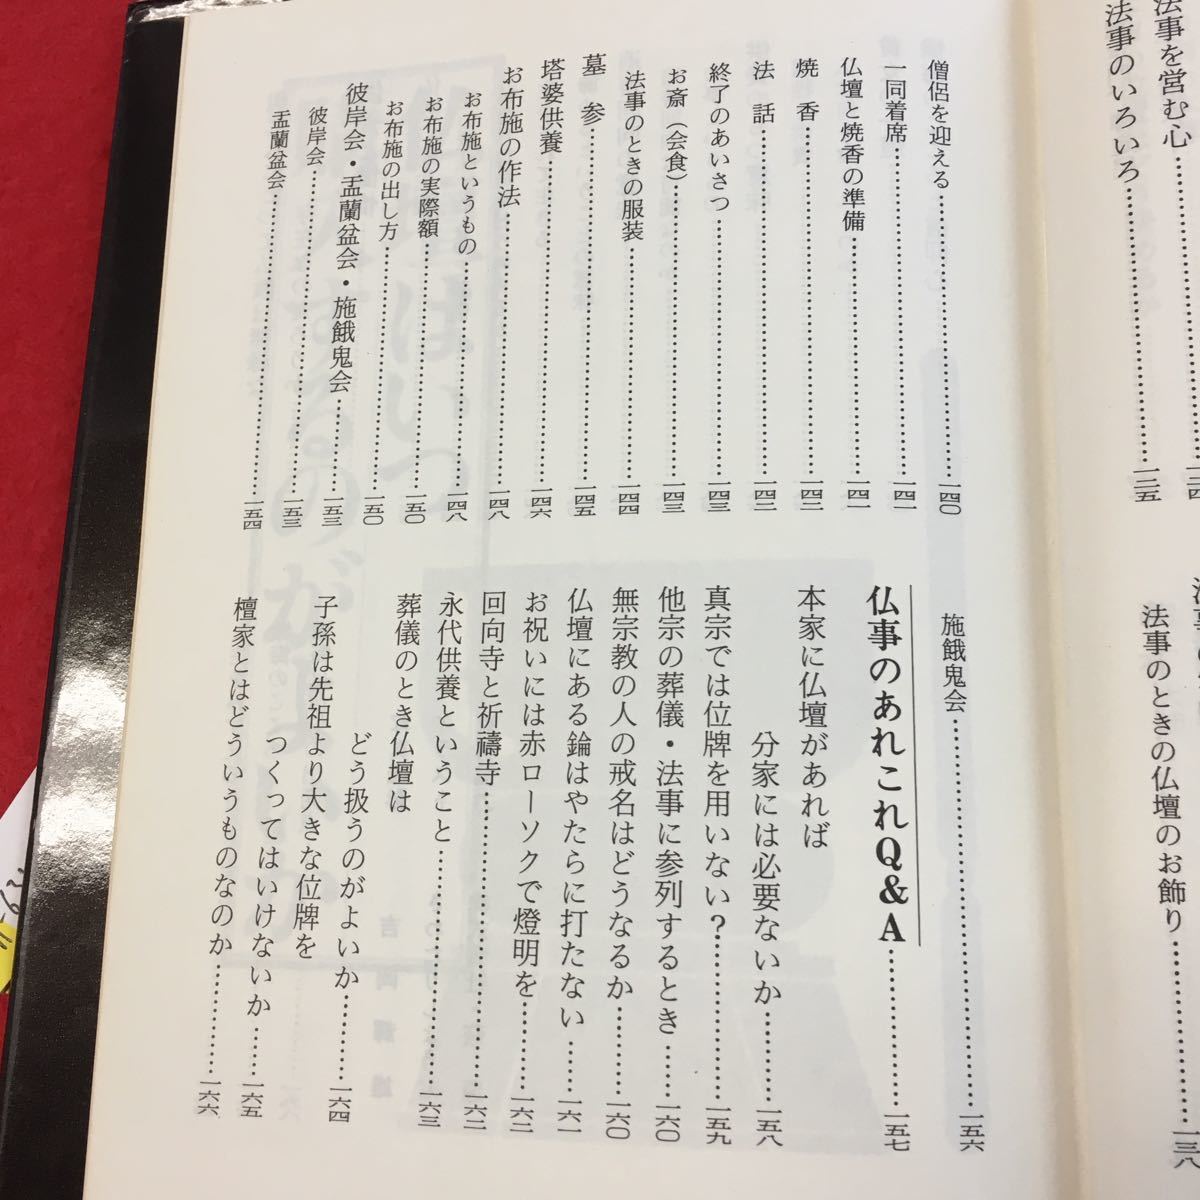 法事を営む心
法事のいろいろ……一三五
法事のときの仏壇のお飾り……一三八
僧侶を迎える……一四〇
一同着席……一四一
仏壇と焼香の準備……一四一
焼　香……一四二
法　話……一四二
終了のあいさつ……一四三
お斎（会食）……一四三
法事のときの服装……一四四
墓　参……一四五
塔婆供養……一四六
お布施の作法……一四八
お布施というもの……一四八
お布施の実際額……一五〇
お布施の出し方……一五〇
彼岸会・盂蘭盆会・施餓鬼会……一五三
彼岸会……一五三
盂蘭盆会……一五四
施餓鬼会……一五六
仏事のあれこれQ&A……一五七
本家に仏壇があれば
分家には必要ないか……一五八
真宗では位牌を用いない？……一五九
他宗の葬儀・法事に参列するとき……一六〇
無宗教の人の戒名はどうなるか……一六〇
仏壇にある鈴はやたらに打たない……一六一
お祝いには赤ローソクで燈明を……一六二
回向寺と祈禱寺……一六二
永代供養ということ……一六三
葬儀のとき仏壇は
どう扱うのがよいか……一六四
子孫は先祖より大きな位牌を
つくってはいけないか……一六五
檀家とはどういうものなのか……一六六